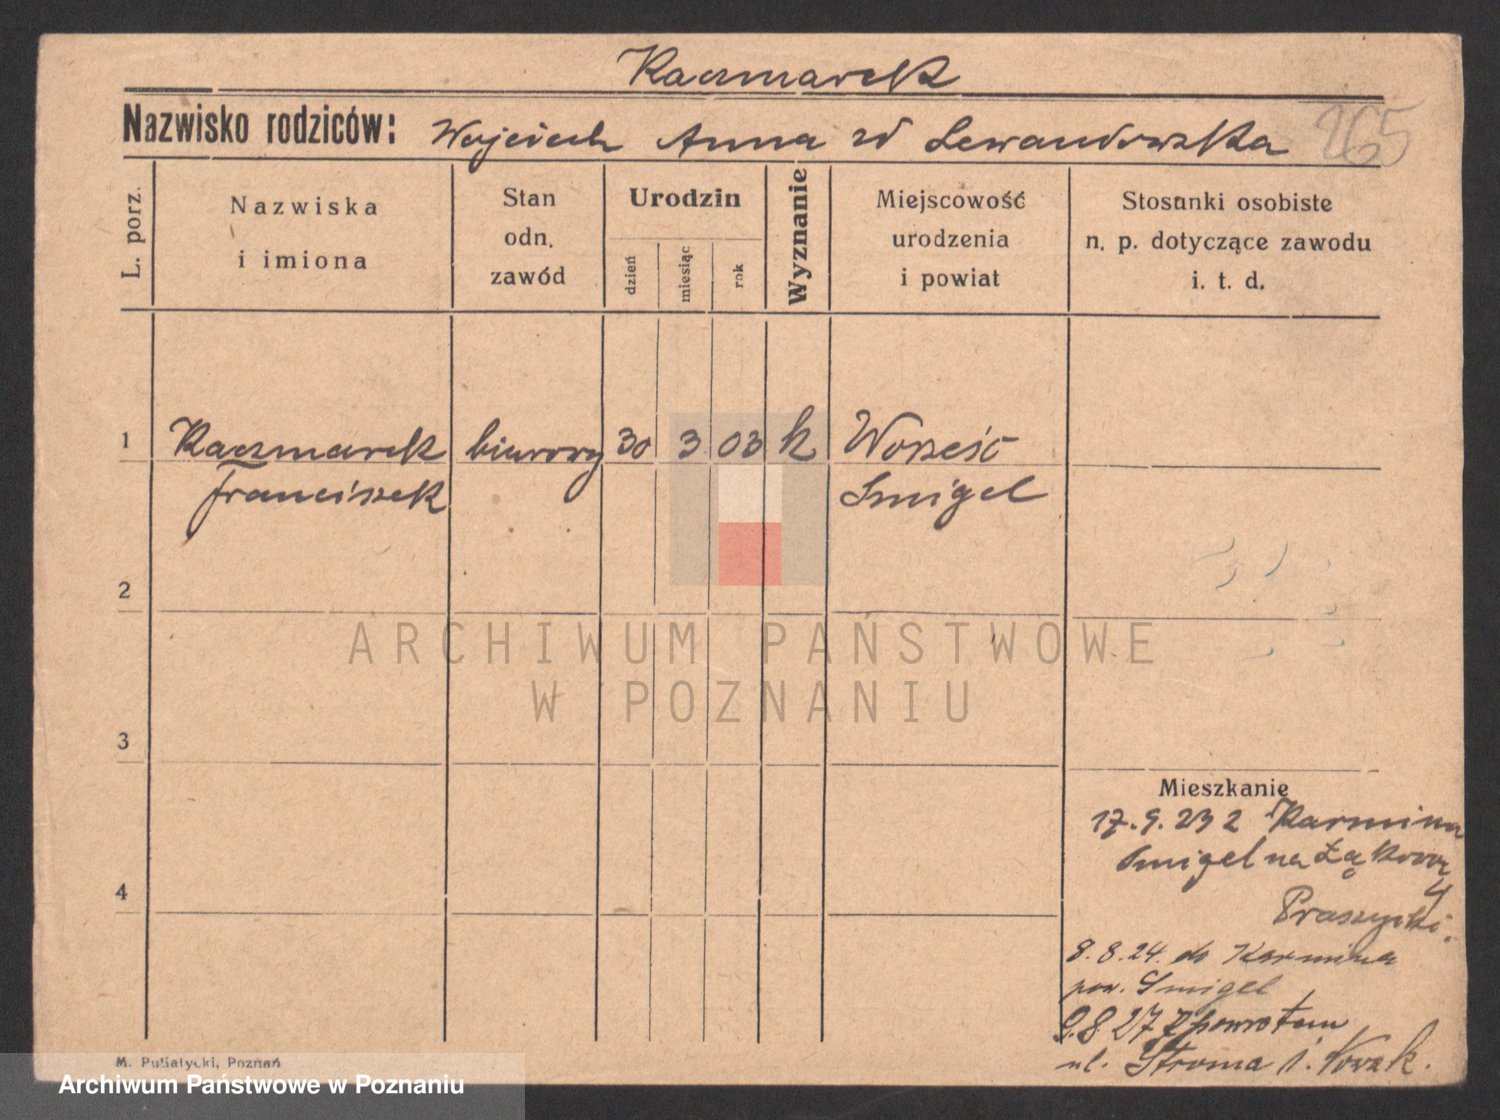 Kaczmarek
Nazwisko rodziców: Wojciech Anna zd Lewandowska
265
L. porz.
Nazwiska
i imiona
Stan
odn.
zawód
Urodzin
dzień
miesiąc
rok
Wyznanie
Miejscowość
urodzenia
i powiat
Stosunki osobiste
n. p. dotyczące zawodu
i. t. d.
1 Kaczmarek biurowy 30 3 03 k
Franciszek Smigel
2
3
4
ARCHIWUM PAŃSTWOWE
W POZNANIU
Mieszkanie
17.9.23 z Karmina
Smigel na Łąkową
4
8.8.24. do Karmina
pow. Smigel
9.8 27 z powrotem
ul. Stroma 1. Nowak.
M. Putiatycki, Poznań
Archiwum Państwowe w Poznaniu